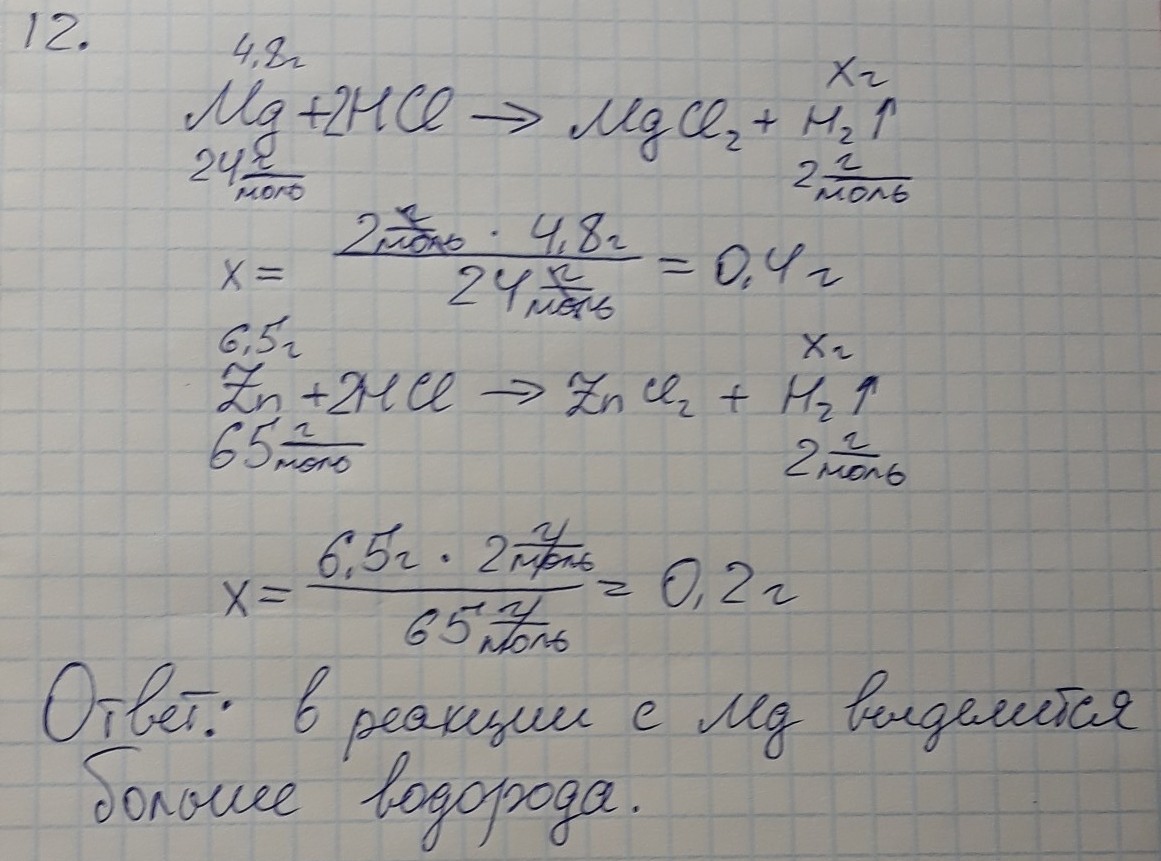 12.
4,8г xг
Mg + 2HCl → MgCl₂ + H₂↑
24 г/моль 2 г/моль
x = 2 г/моль · 4,8г / 24 г/моль = 0,4г
6,5г xг
Zn + 2HCl → ZnCl₂ + H₂↑
65 г/моль 2 г/моль
x = 6,5г · 2 г/моль / 65 г/моль = 0,2г
Ответ: в реакции с Mg выделится
больше водорода.